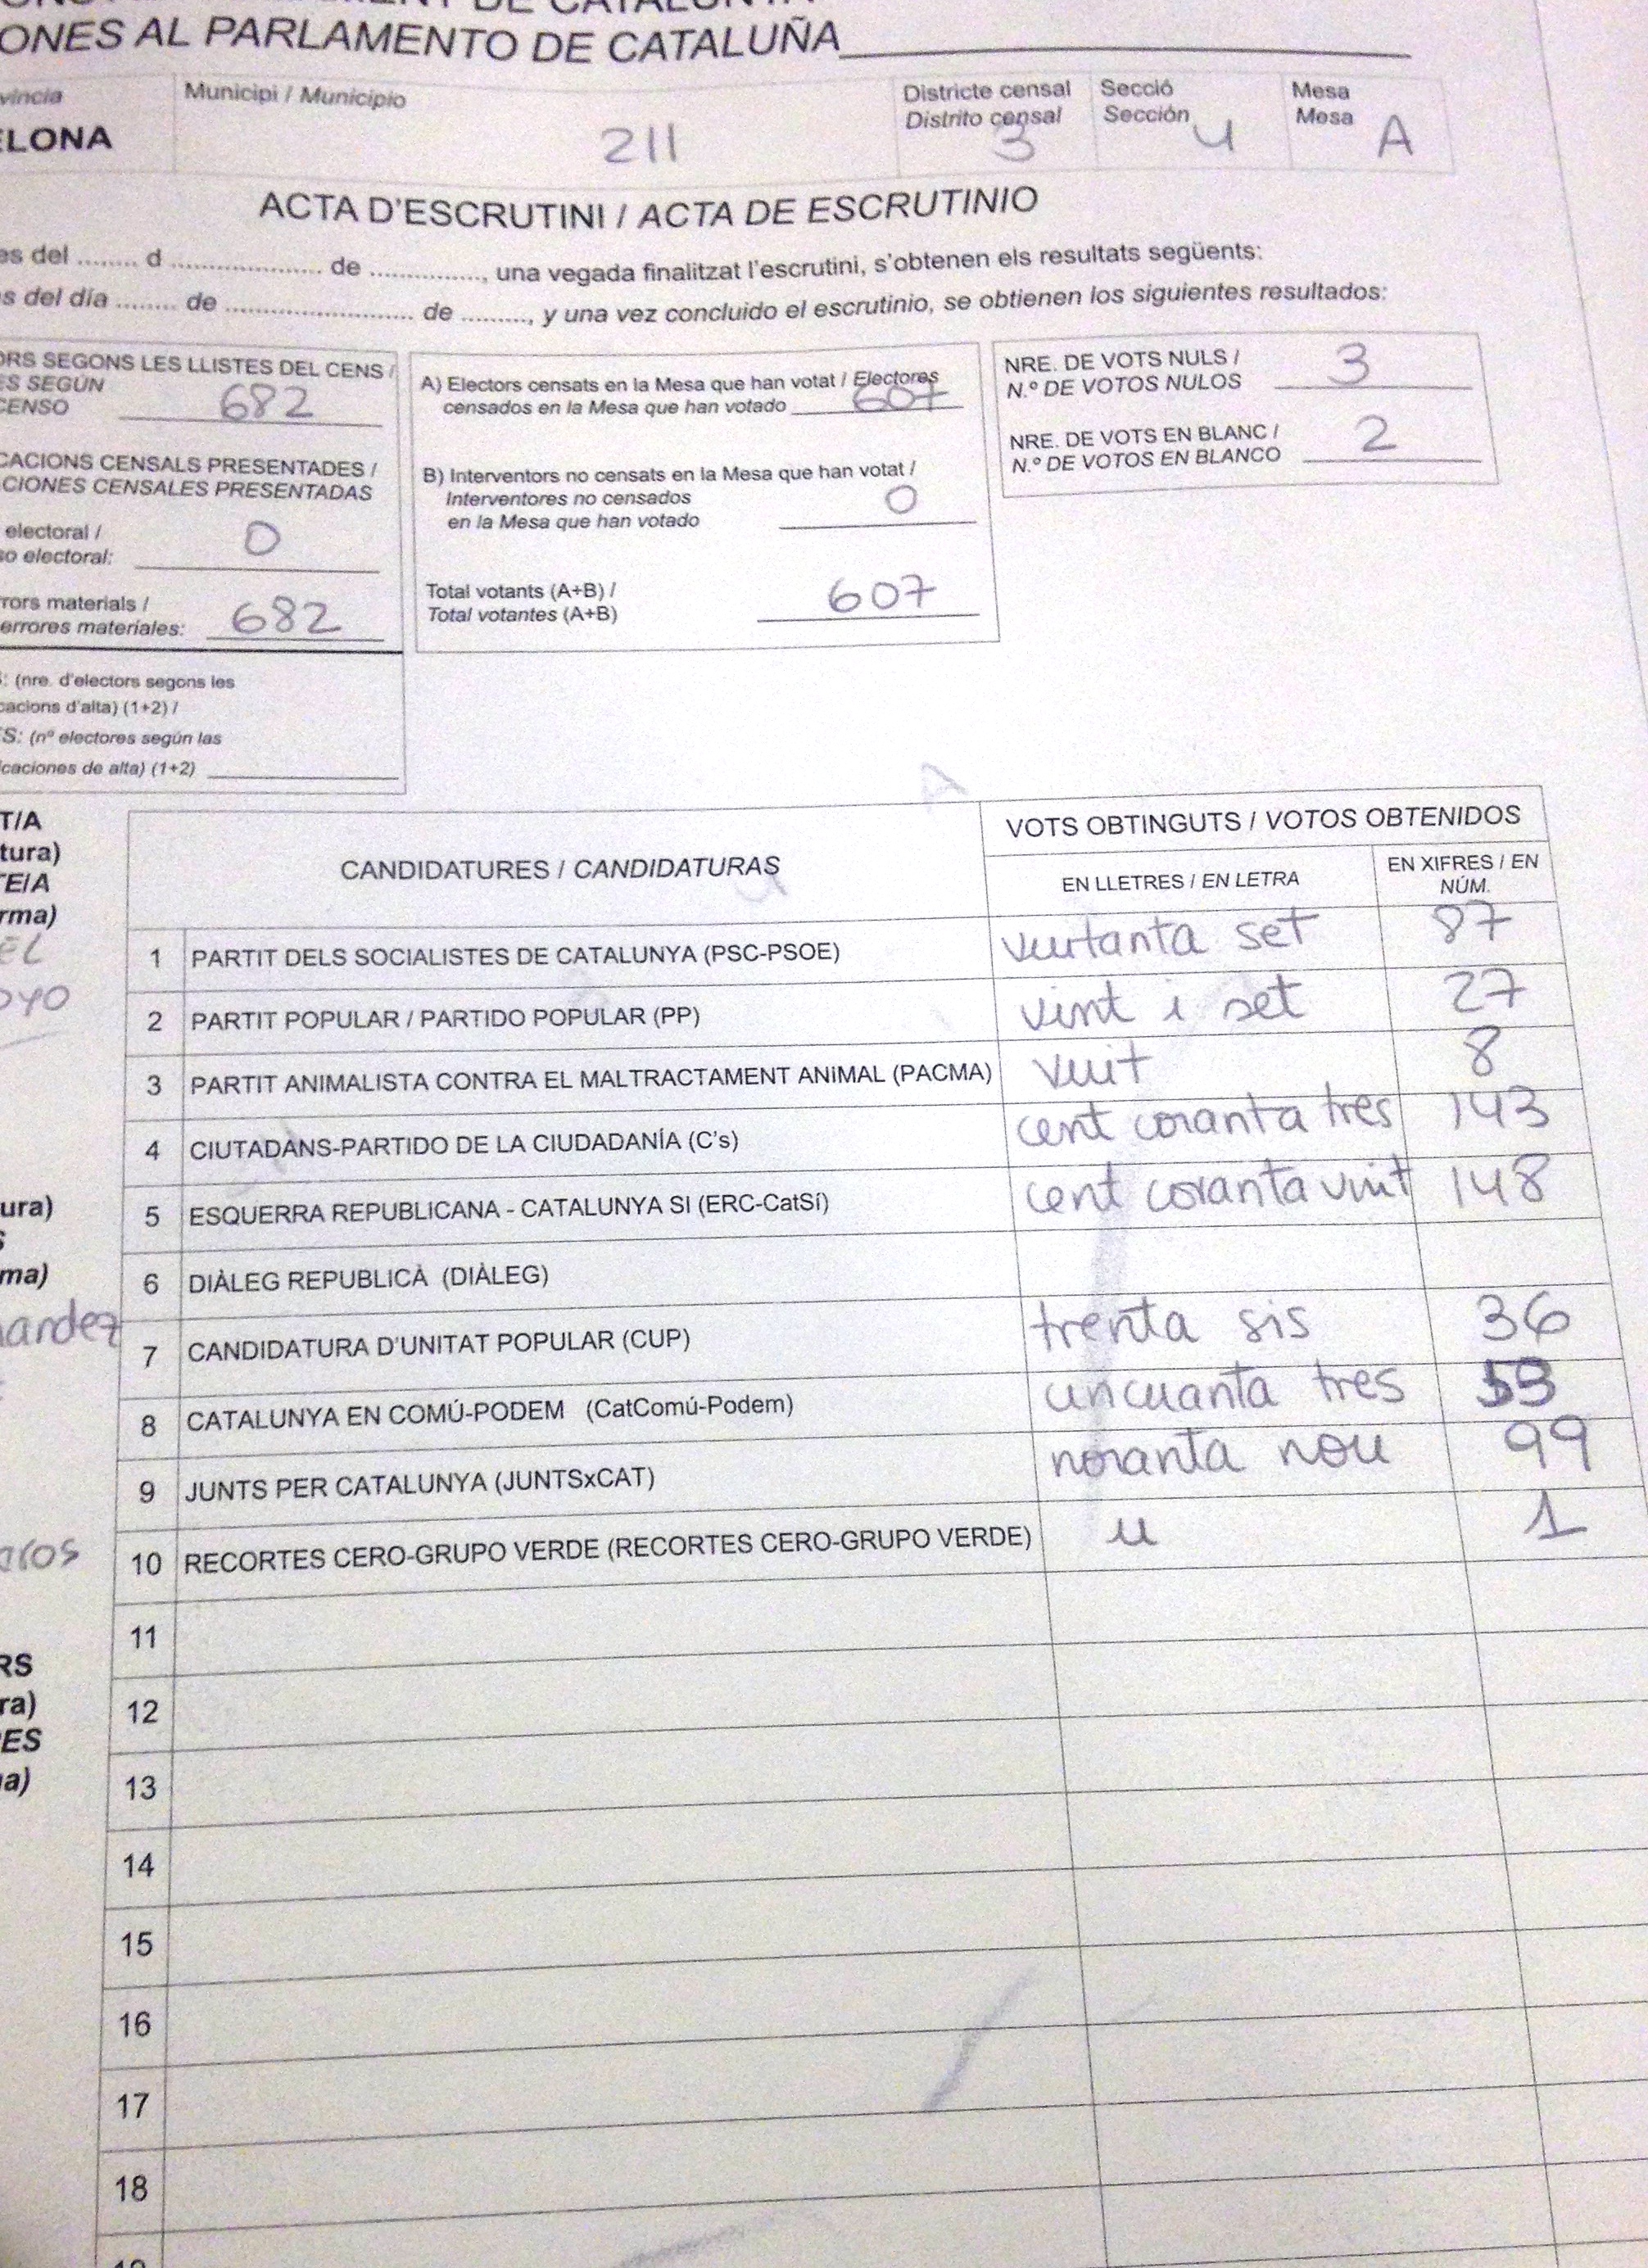 ONES AL PARLAMENTO DE CATALUÑA
Municipi / Municipio
211
Districte censal
Distrito censal
3
Secció
Sección
4
Mesa
Mesa
A
ELONA
ACTA D'ESCRUTINI / ACTA DE ESCRUTINIO
es del ........ d ..................... de ............, una vegada finalitzat l'escrutini, s'obtenen els resultats següents:
s del día ........ de ..................... de ........, y una vez concluido el escrutinio, se obtienen los siguientes resultados:
ORS SEGONS LES LLISTES DEL CENS /
ES SEGÚN
CENSO
682
CACIONS CENSALS PRESENTADES /
CIONES CENSALES PRESENTADAS
electoral /
o electoral:
0
rors materials /
errores materiales:
682
(nre. d'electors segons les
cacions d'alta) (1+2) /
S: (nº electores según las
caciones de alta) (1+2)
A) Electors censats en la Mesa que han votat / Electores
censados en la Mesa que han votado
607
B) Interventors no censats en la Mesa que han votat /
Interventores no censados
en la Mesa que han votado
0
Total votants (A+B) /
Total votantes (A+B)
607
NRE. DE VOTS NULS /
N.º DE VOTOS NULOS
3
NRE. DE VOTS EN BLANC /
N.º DE VOTOS EN BLANCO
2
CANDIDATURES / CANDIDATURAS
VOTS OBTINGUTS / VOTOS OBTENIDOS
EN LLETRES / EN LETRA
EN XIFRES / EN
NÚM.
1 PARTIT DELS SOCIALISTES DE CATALUNYA (PSC-PSOE) vuitanta set 87
2 PARTIT POPULAR / PARTIDO POPULAR (PP) vint i set 27
3 PARTIT ANIMALISTA CONTRA EL MALTRACTAMENT ANIMAL (PACMA) vuit 8
4 CIUTADANS-PARTIDO DE LA CIUDADANÍA (C's) cent coranta tres 143
5 ESQUERRA REPUBLICANA - CATALUNYA SI (ERC-CatSí) cent coranta vuit 148
6 DIÀLEG REPUBLICÀ (DIÀLEG)
7 CANDIDATURA D'UNITAT POPULAR (CUP) trenta sis 36
8 CATALUNYA EN COMÚ-PODEM (CatComú-Podem) cincuanta tres 53
9 JUNTS PER CATALUNYA (JUNTSxCAT) noranta nou 99
10 RECORTES CERO-GRUPO VERDE (RECORTES CERO-GRUPO VERDE) u 1
11
12
13
14
15
16
17
18